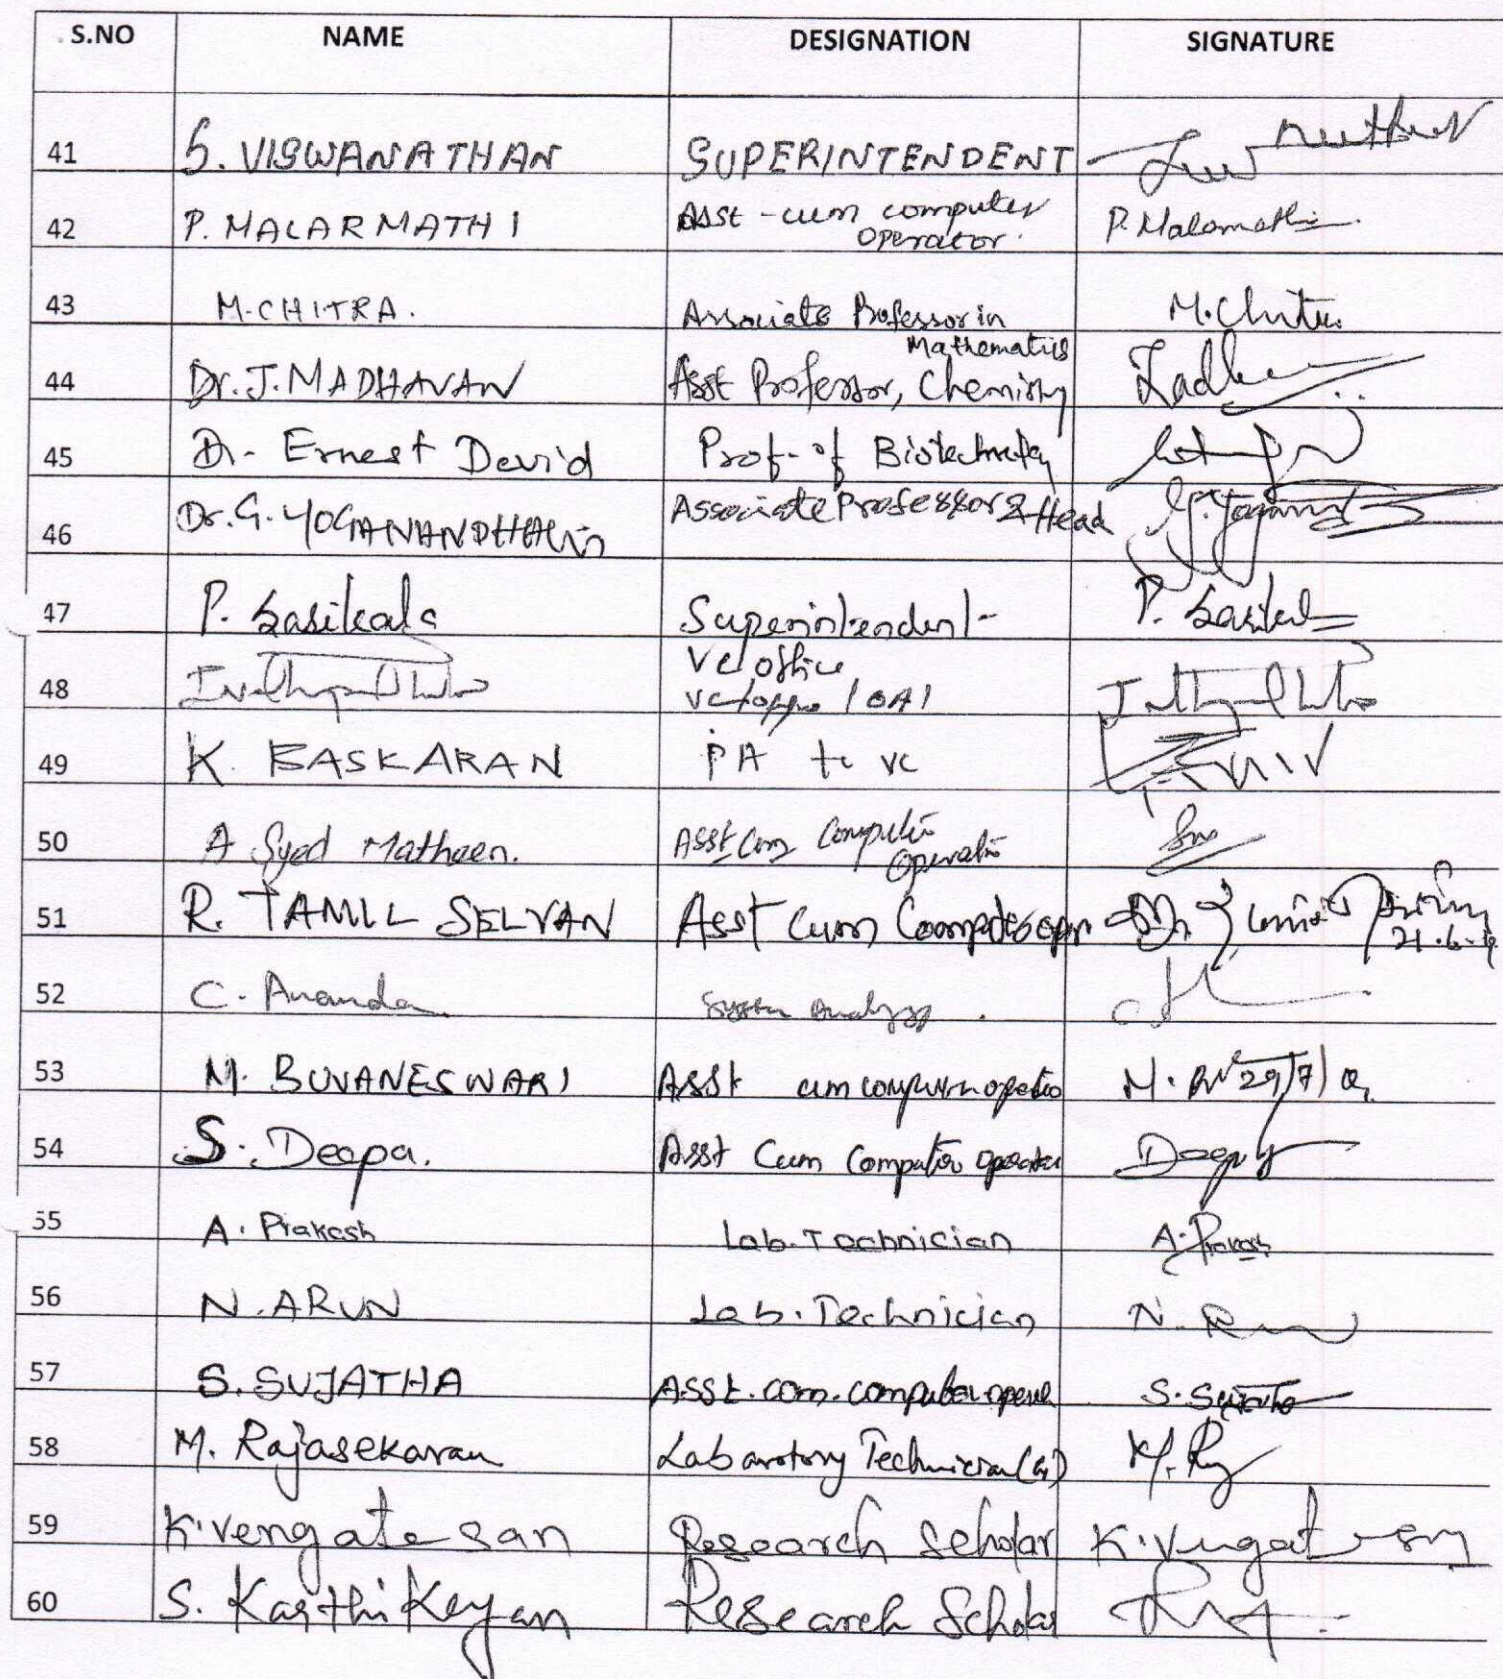 S.NO NAME DESIGNATION SIGNATURE
41 S. VISWANATHAN SUPERINTENDENT
42 P. MALARMATHI Asst - cum computer P. Malarmathi
operator.
43 M. CHITRA. Associate Professor in M. Chitra
Mathematics
44 Dr. J. MADHAVAN Asst Professor, Chemistry
45 Dr. Ernest David Prof. of Biotechnology
46 Dr. G. YOGANANDHAM Associate Professor & Head G. Yoganand
47 P. Sasikala Superintendent P. Sasikala
VC office
48 VC office / OA1
49 K. BASKARAN PA to VC
50 A Syed Matheen. Asst Cum Computer
Operator
51 R. TAMIL SELVAN Asst Cum Computer opr
21.6.
52 C. Ananda System Analyst.
53 M. BUVANESWARI Asst cum computer operator M. 29/7/
54 S. Deepa. Asst Cum Computer operator Deepa
55 A. Prakash Lab. Technician A. Prakash
56 N. ARUN Lab. Technician N.
57 S. SUJATHA Asst. com. computer opera S. Sujatha
58 M. Rajasekaran Labarotory Technician M.
59 K. Vengatesan Research Scholar K. Vengatesan
60 S. Karthikeyan Research Scholar